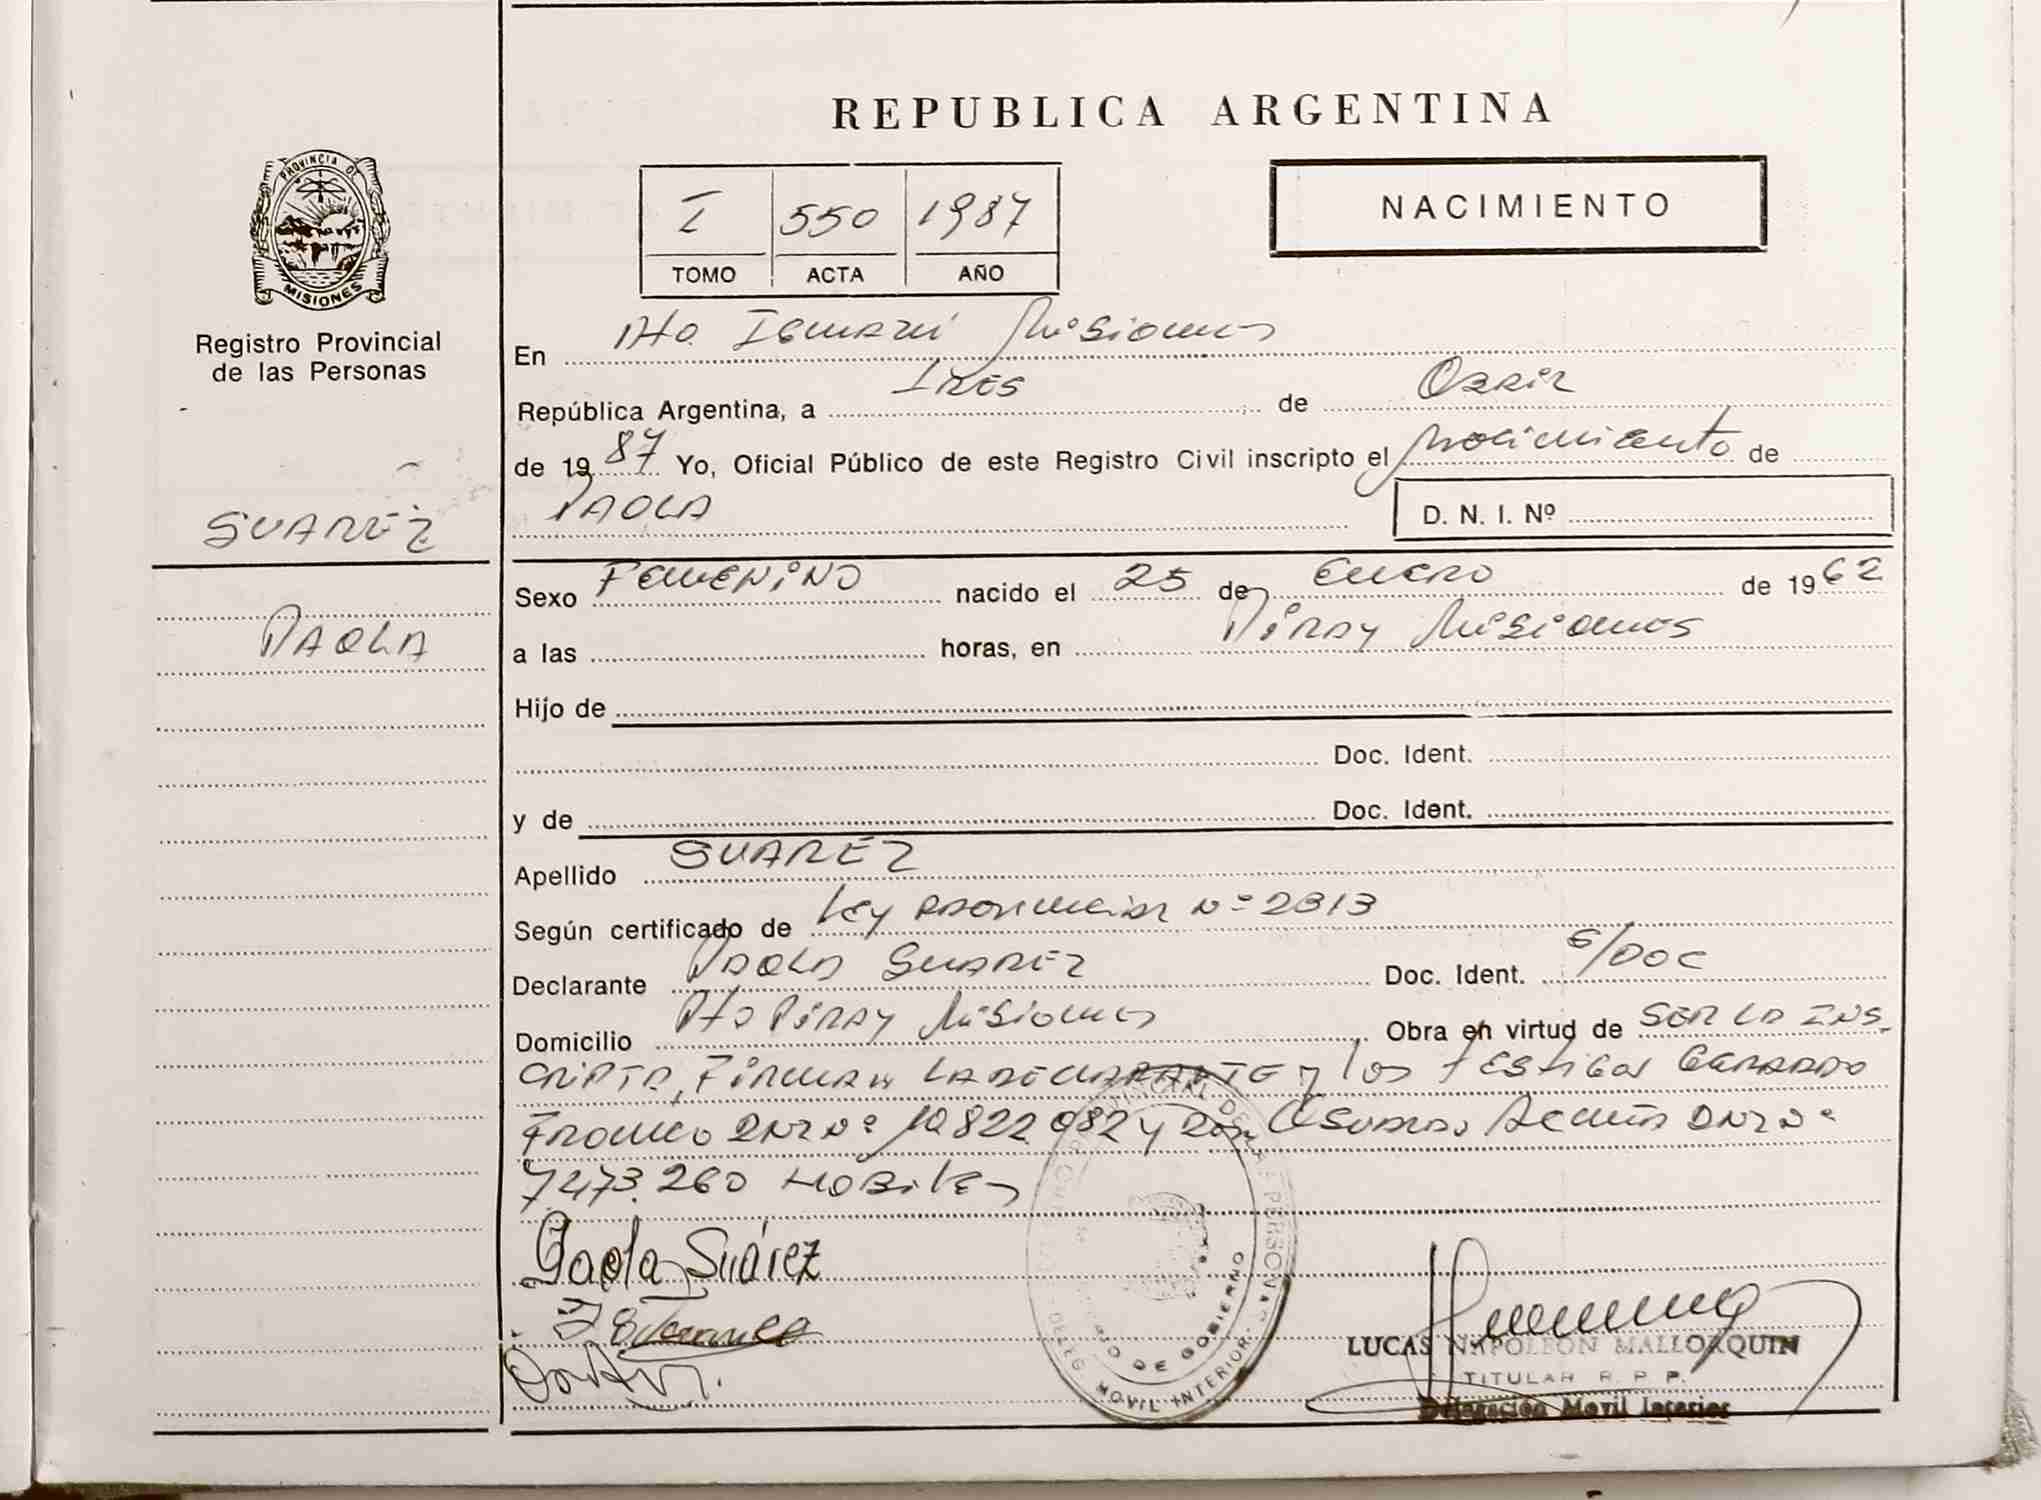 REPUBLICA ARGENTINA
PROVINCIA DE
MISIONES
Registro Provincial
de las Personas
I 550 1987
TOMO ACTA AÑO
NACIMIENTO
En Pto. Iguazú Misiones
República Argentina, a TRES de ABRIL
de 1987 Yo, Oficial Público de este Registro Civil inscripto el Nacimiento de
PAOLA
D. N. I. Nº
SUAREZ
PAOLA
Sexo FEMENINO nacido el 25 de ENERO de 1962
a las horas, en Piray Misiones
Hijo de
Doc. Ident.
y de Doc. Ident.
Apellido SUAREZ
Según certificado de Ley Provincial Nº 2313
Declarante PAOLA SUAREZ Doc. Ident. S/DOC
Domicilio Pto Piray Misiones Obra en virtud de SER LA INS-
CRIPTA, Firman LA DECLARANTE y los TESTIGOS GERARDO
FRANCO DNI Nº 10.822.082 y OSVALDO DNI Nº
7473.260
Paola Suárez
LUCAS NAPOLEON MALLORQUIN
TITULAR R. P. P.
Delegación Movil Interior
DE GOBIERNO
DELEG. MOVIL INTERIOR